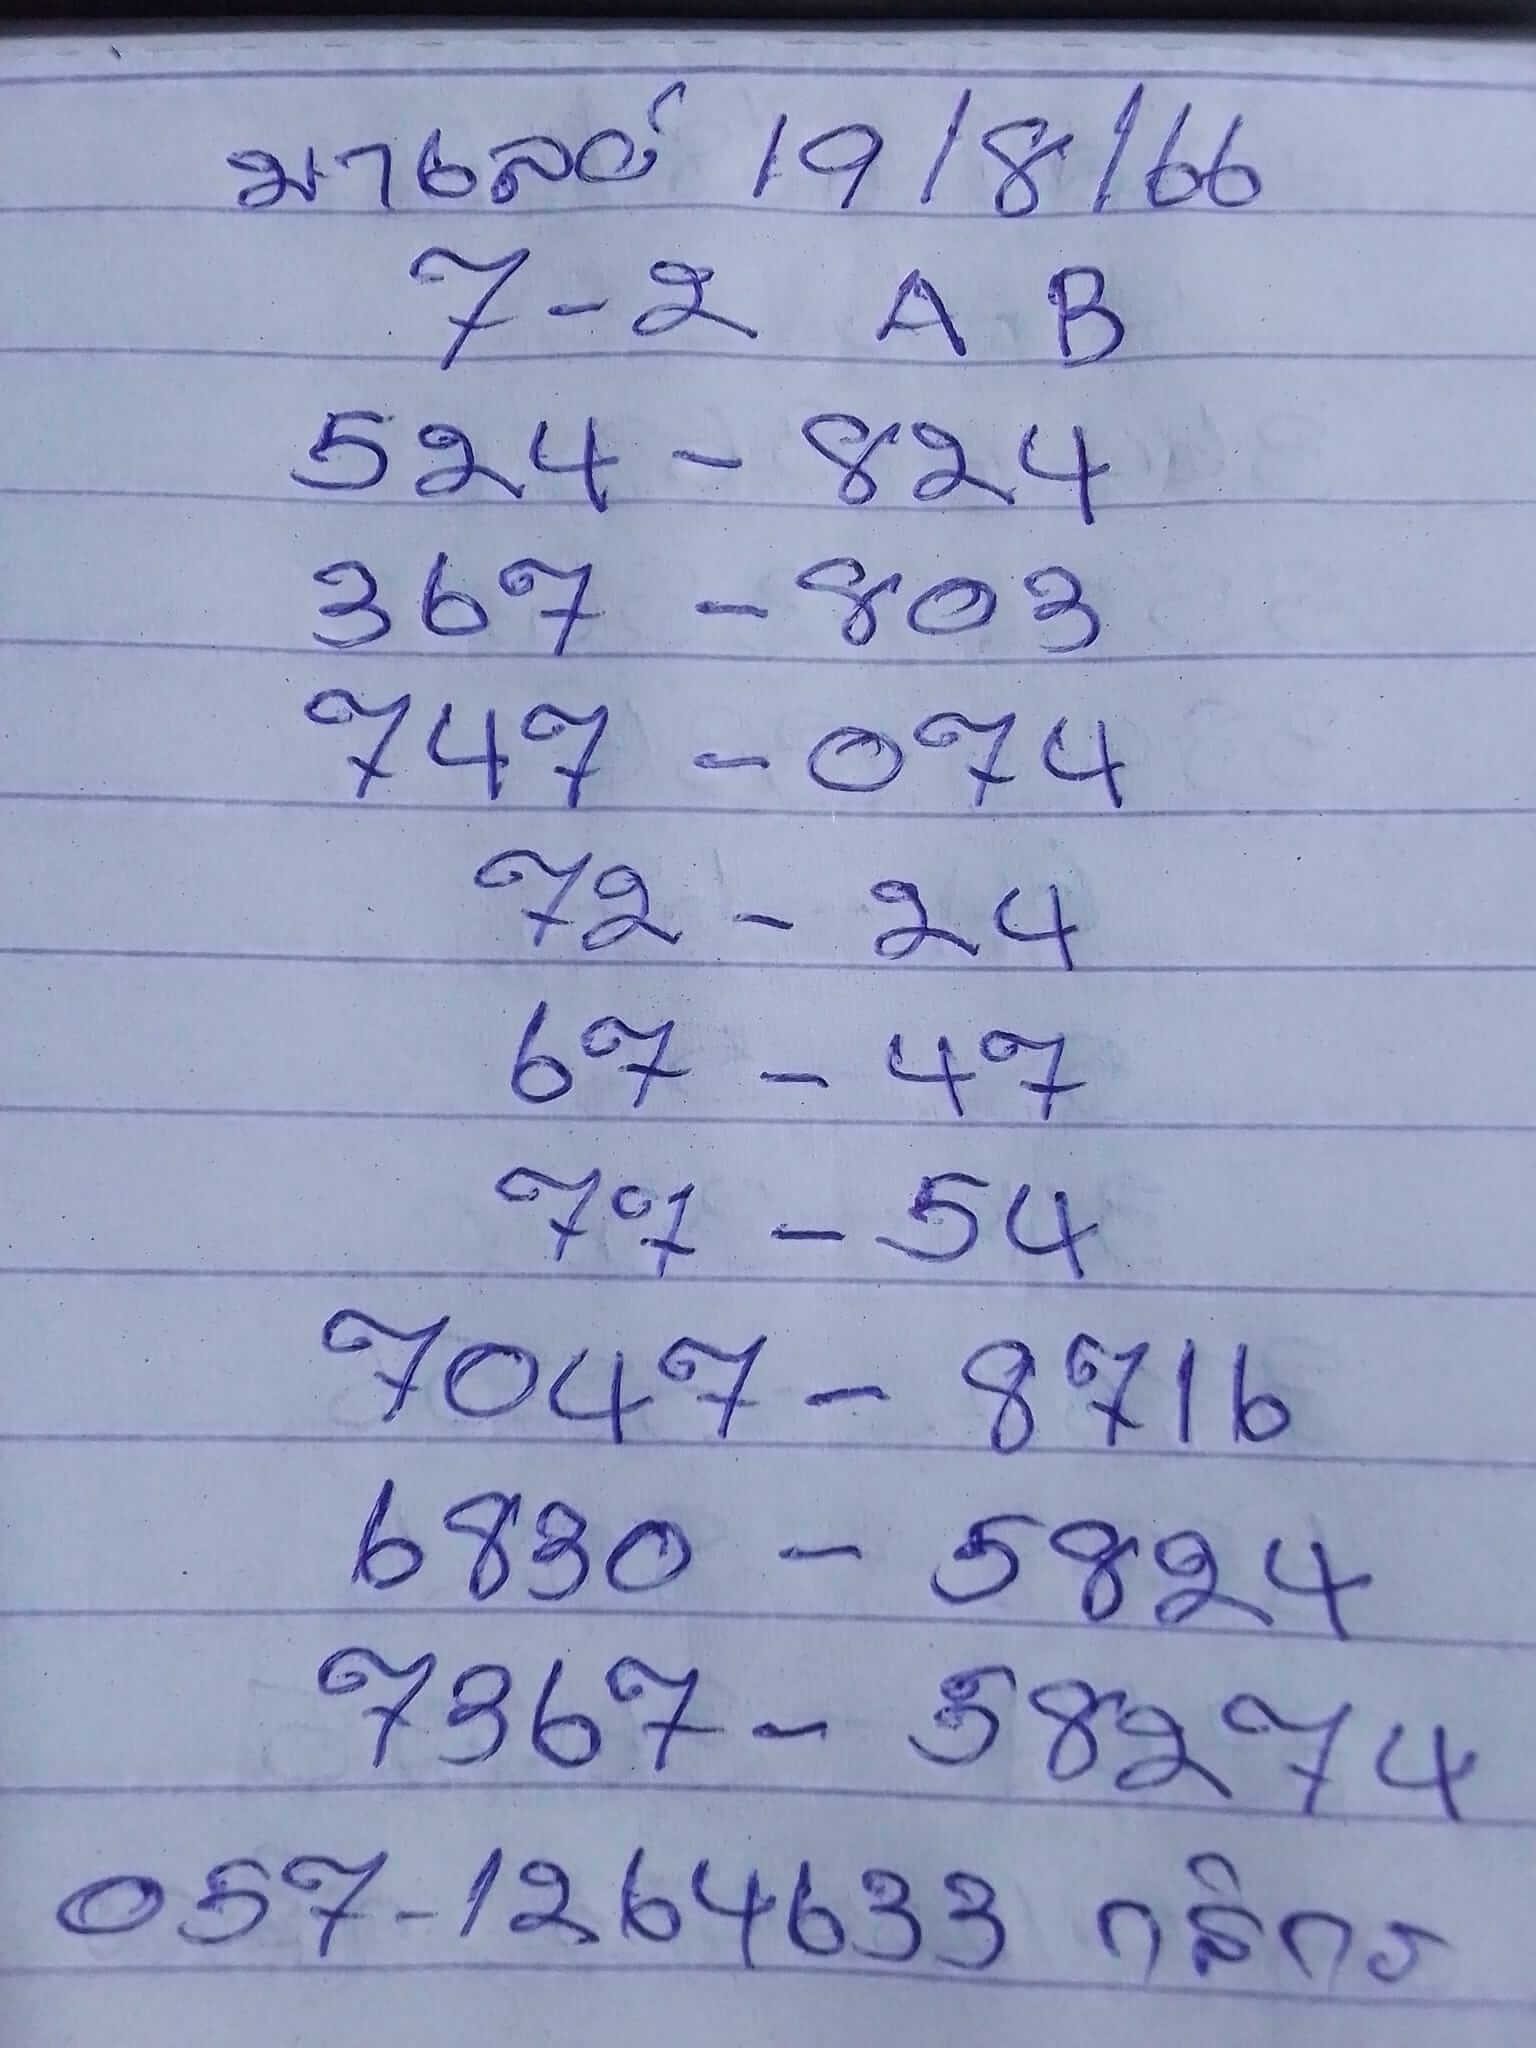 มาเลย์ 19/8/66
7-2 A B
524 - 824
367 - 803
747 - 074
72 - 24
67 - 47
77 - 54
7047 - 8716
6830 - 5824
7367 - 58274
057-1264633 กสิกร